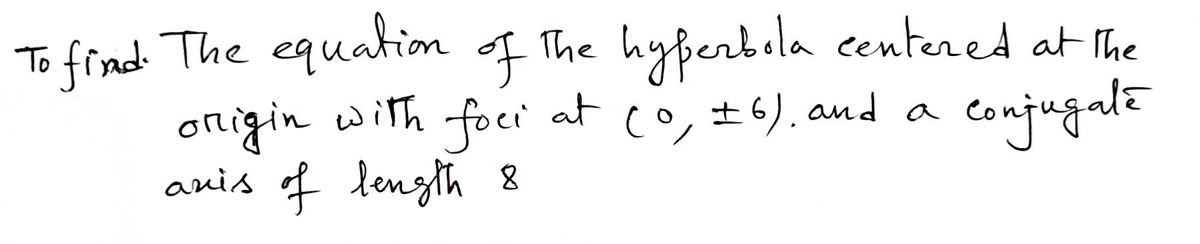 To find. The equation of the hyperbola centered at the
origin with foci at (0, ±6). and a conjugate
axis of length 8